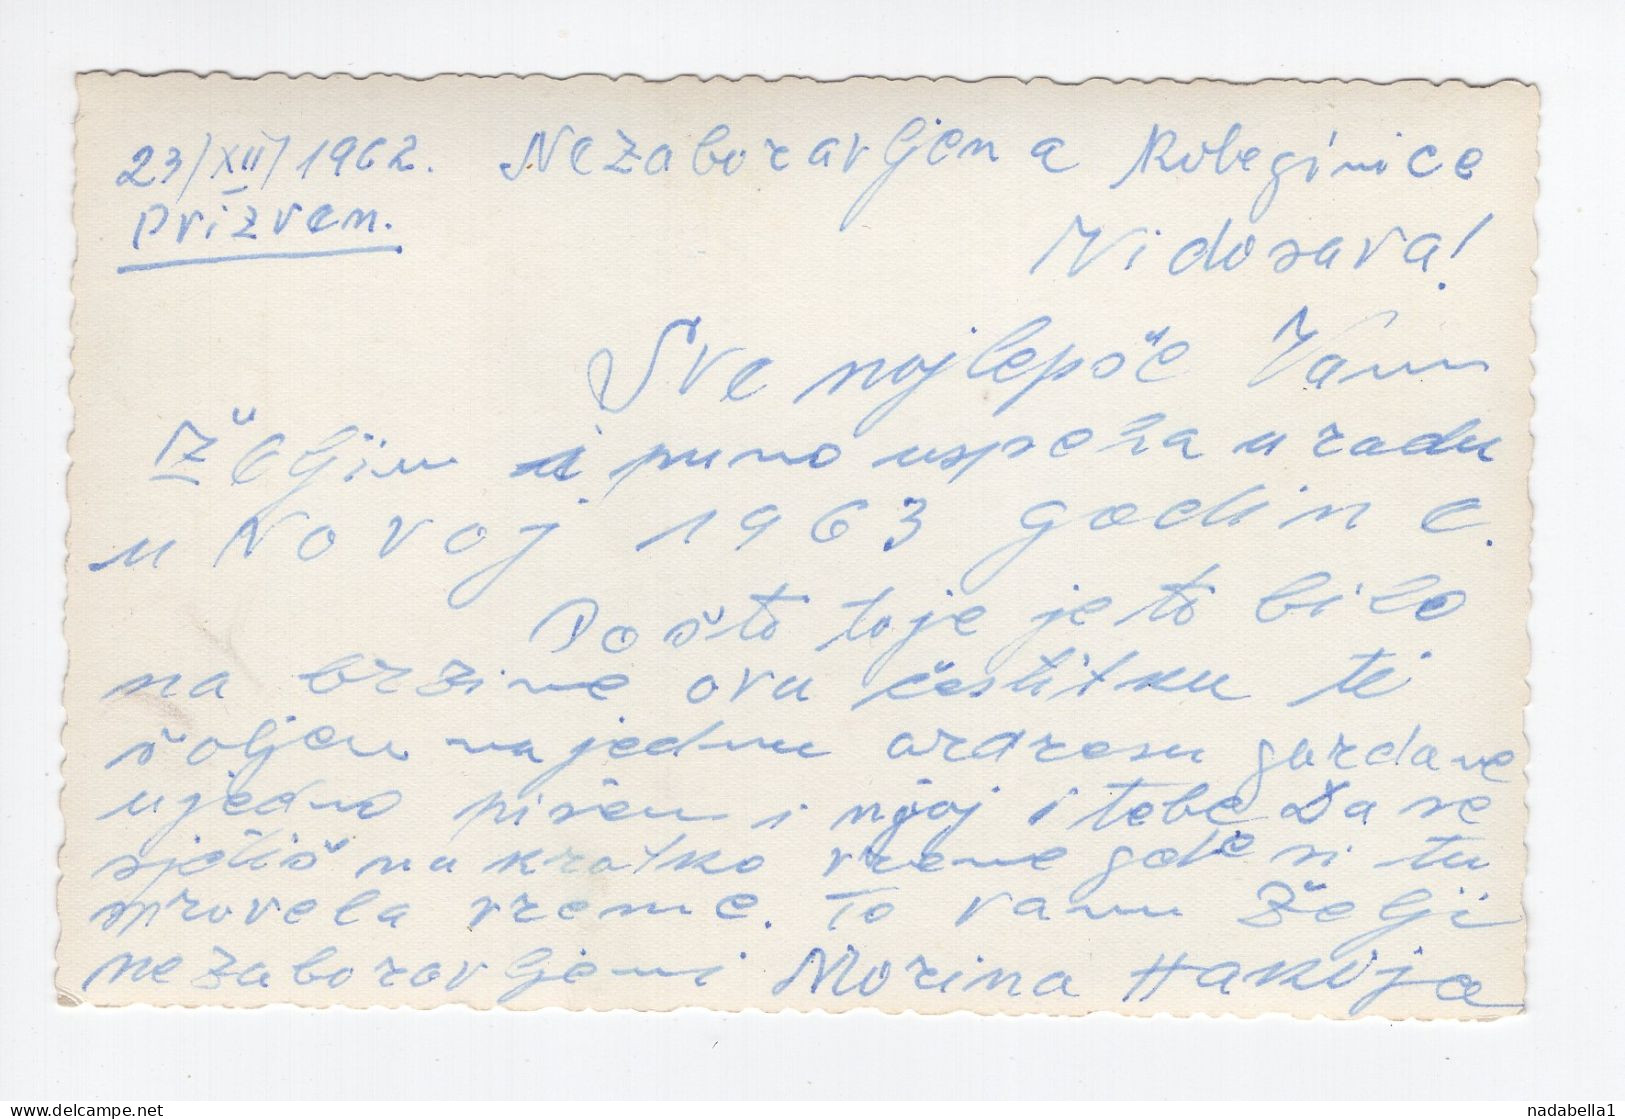 23/XII/1962. Nezaboravljena Koleginice
Prizren.
Vidosava!
Sve najlepše Vam
Željim i puno uspeha u radu
u Novoj 1963 godine.
Pošto toje je to bilo
na brzine ovu čestitku ti
šaljem na jednu ardresu gordane
ujedno pišem i njoj i tebe Da se
sjetiš na kratko vreme gde si tu
provela vreme. To vam Želji
nezaboravljeni Morina Hakija
delcampe.net
nadabella1